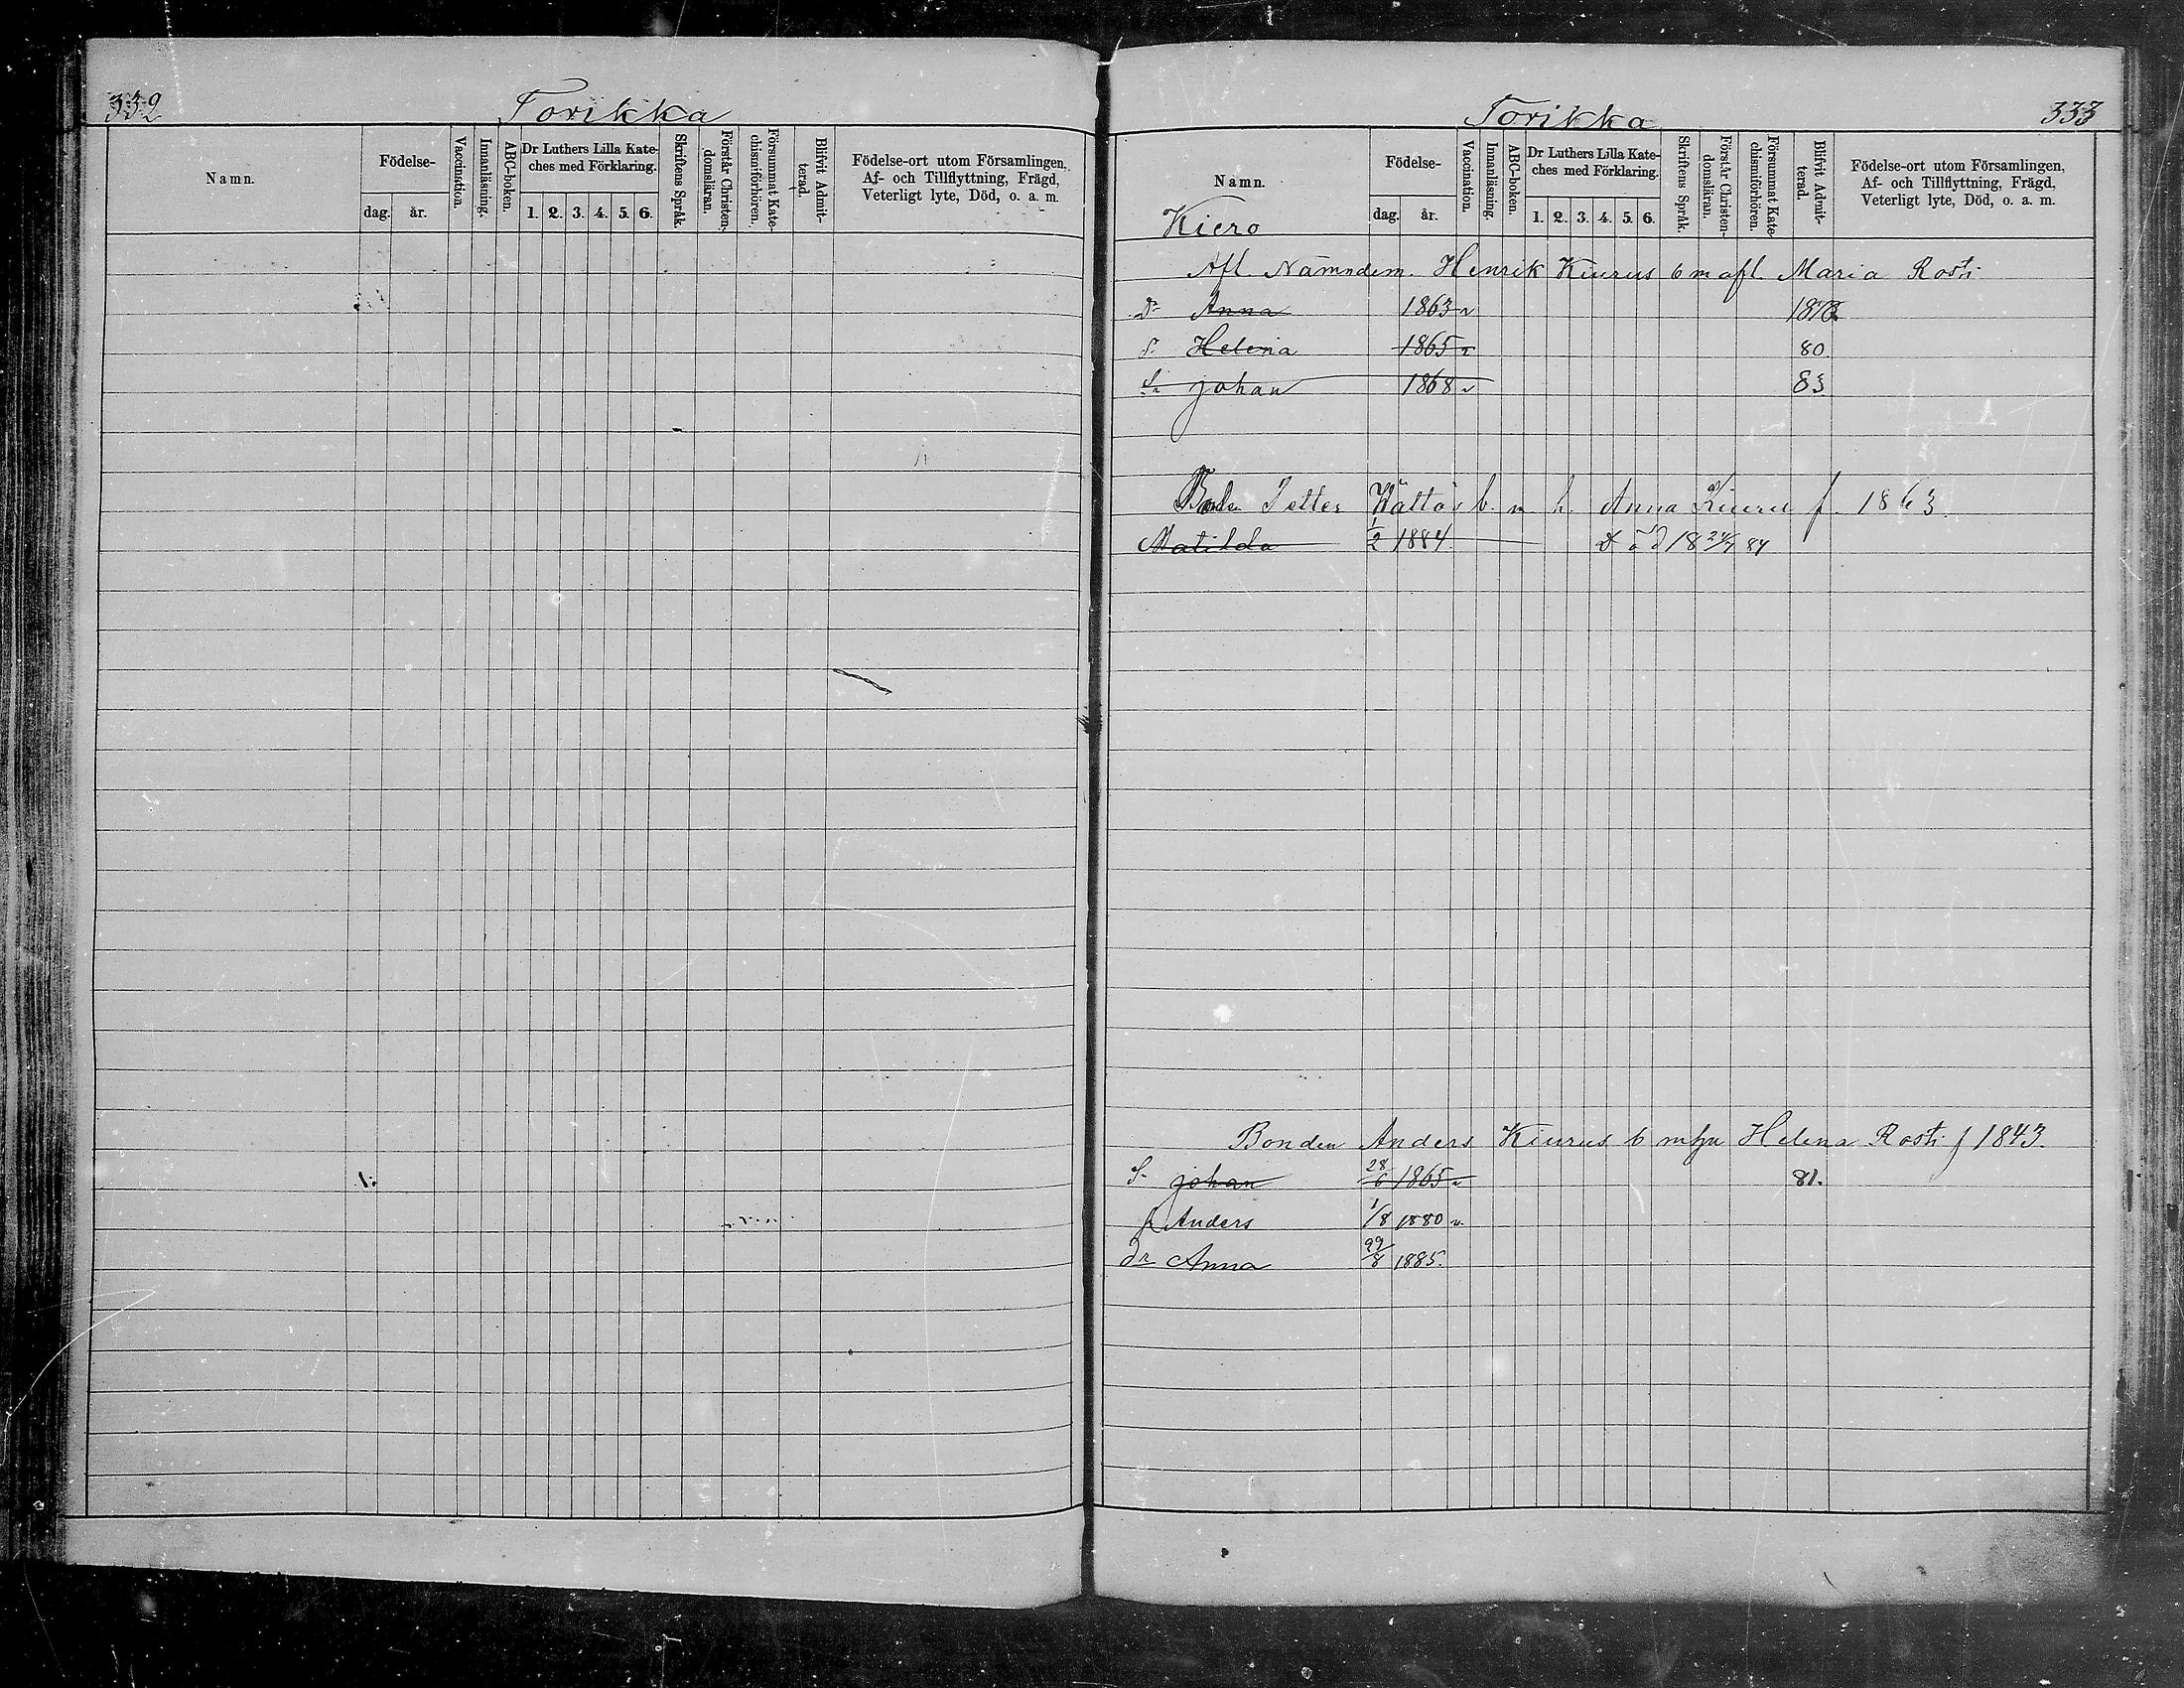 332
Torikka
Namn.
Födelse-
dag.
år.
Vaccination.
Innanläsning.
ABC-boken.
Dr Luthers Lilla Kate-
ches med Förklaring.
1. 2. 3. 4. 5. 6.
Skriftens Språk.
Förstår Christen-
domsläran.
Försummat Kate-
chismiförhören.
Blifvit Admit-
terad.
Födelse-ort utom Församlingen,
Af- och Tillflyttning, Frägd,
Veterligt lyte, Död, o. a. m.
Torikka
333
Namn.
Kiero
Födelse-
dag.
år.
Vaccination.
Innanläsning.
ABC-boken.
Dr Luthers Lilla Kate-
ches med Förklaring.
1. 2. 3. 4. 5. 6.
Skriftens Språk.
Förstår Christen-
domsläran.
Försummat Kate-
chismiförhören.
Blifvit Admit-
terad.
Födelse-ort utom Församlingen,
Af- och Tillflyttning, Frägd,
Veterligt lyte, Död, o. a. m.
Afl. Nämndem. Henrik Kiurus b m afl. Maria Rosti
Dr Anna 1863 v
Helena 1865 v 80
Sn Johan 1868 v 83
Bonden Petter Wättö b. m. h. Anna Kiuru f. 1863.
Matilda 1/2 1884. Död 18 24/7 84
Bonden Anders Kiurus b m hu Helena Rosti f 1843.
Sn Johan 28/6 1865 v 81.
Anders 1/8 1880 v.
Dr Anna 29/8 1885.